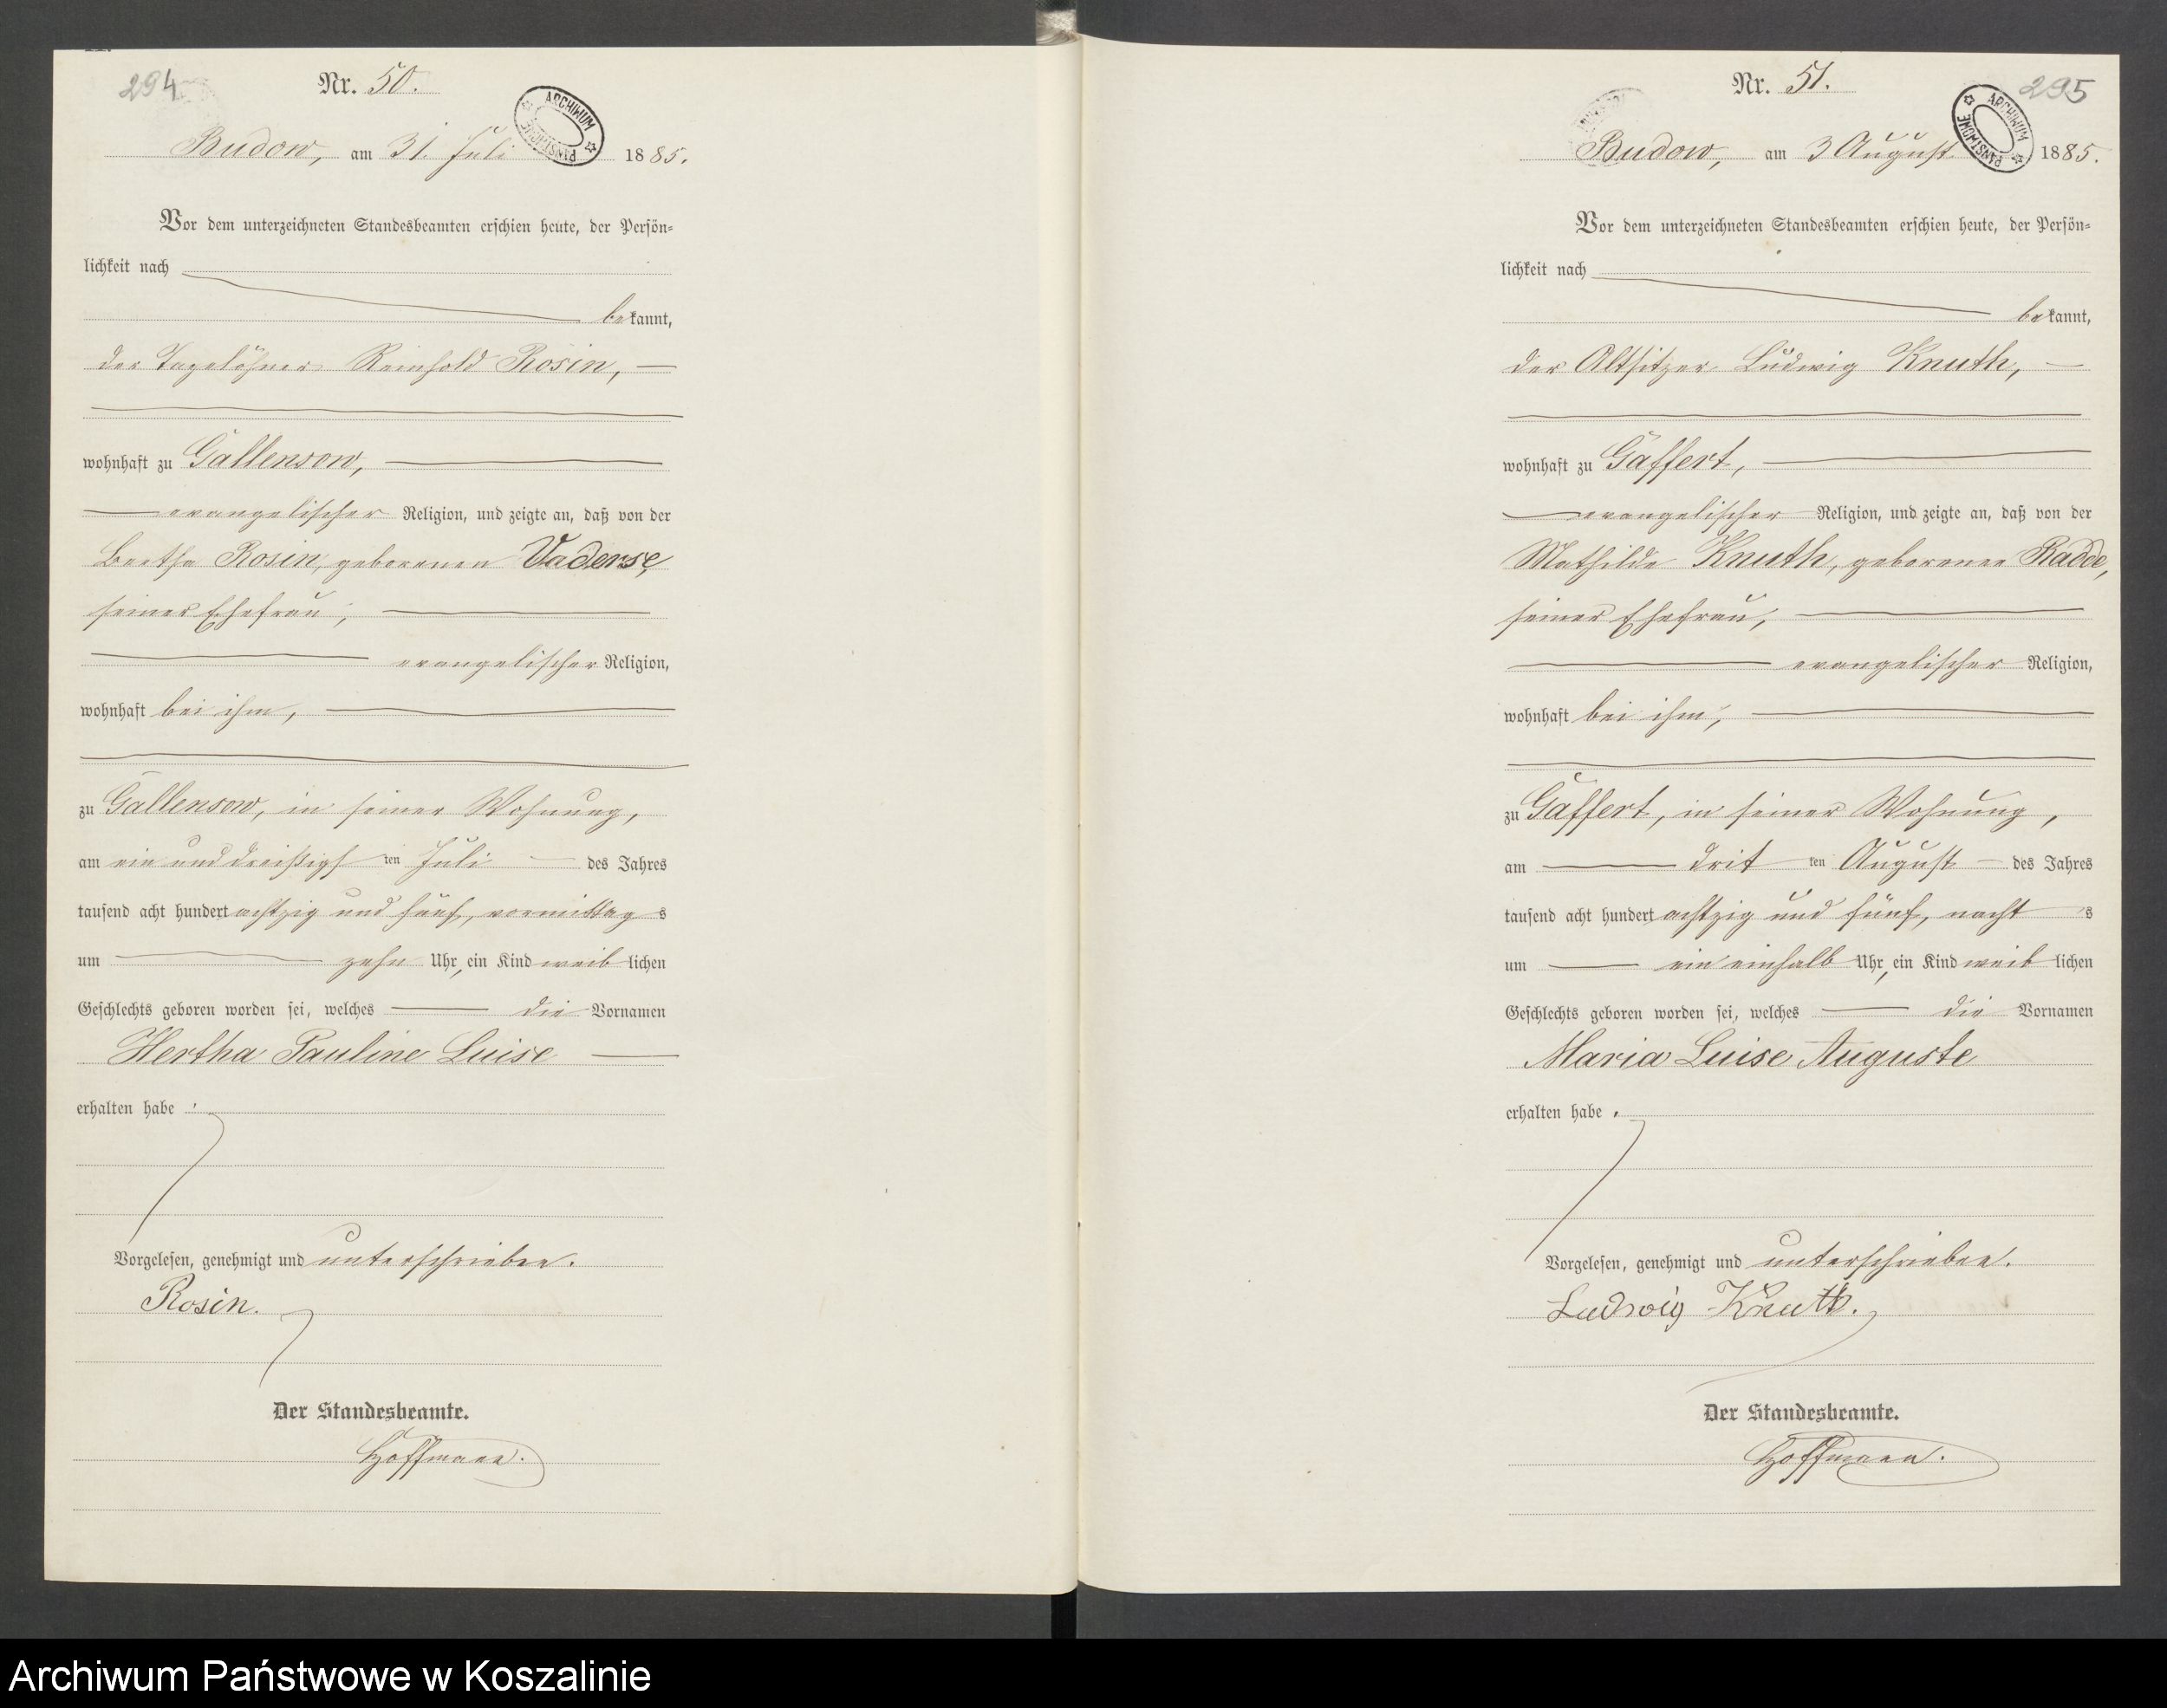 294
Nr. 50.
ARCHIWUM PAŃSTWOWE
Budow, am 31. Juli 1885.
Vor dem unterzeichneten Standesbeamten erschien heute, der Persön-
lichkeit nach
bekannt,
der Tagelöhner Reinhold Rosin,
wohnhaft zu Gallensow,
evangelischer Religion, und zeigte an, daß von der
Bertha Rosin, geborenen Vadense,
seiner Ehefrau,
evangelischer Religion,
wohnhaft bei ihm,
zu Gallensow, in seiner Wohnung,
am ein und dreißigsten Juli des Jahres
tausend acht hundert achtzig und fünf, vormittags
um zehn Uhr, ein Kind weiblichen
Geschlechts geboren worden sei, welches die Vornamen
Hertha Pauline Luise
erhalten habe.
Vorgelesen, genehmigt und unterschrieben.
Rosin.
Der Standesbeamte.
Hoffmann.
295
Nr. 51.
ARCHIWUM PAŃSTWOWE
Budow, am 3 August 1885.
Vor dem unterzeichneten Standesbeamten erschien heute, der Persön-
lichkeit nach
bekannt,
der Altsitzer Ludwig Knuth,
wohnhaft zu Gaffert,
evangelischer Religion, und zeigte an, daß von der
Mathilde Knuth, geborenen Radde,
seiner Ehefrau,
evangelischer Religion,
wohnhaft bei ihm,
zu Gaffert, in seiner Wohnung,
am dritten August des Jahres
tausend acht hundert achtzig und fünf, nachts
um ein einhalb Uhr, ein Kind weiblichen
Geschlechts geboren worden sei, welches die Vornamen
Maria Luise Auguste
erhalten habe.
Vorgelesen, genehmigt und unterschrieben.
Ludwig Knuth.
Der Standesbeamte.
Hoffmann.
Archiwum Państwowe w Koszalinie